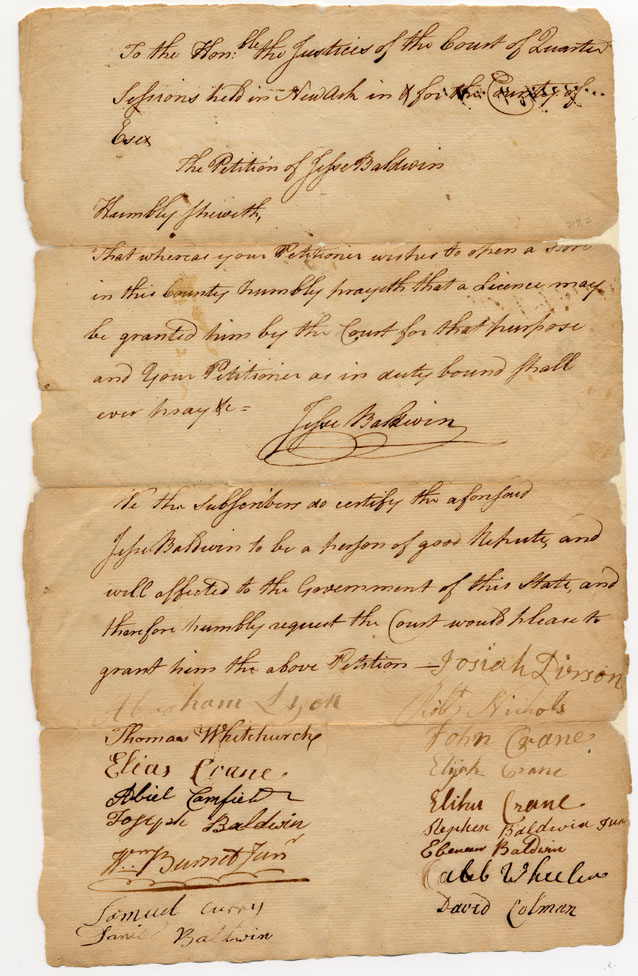 To the Hon:ble the Justices of the Court of Quarter
Sessions held in NewArk in & for the County of
Esex
The Petition of Jesse Baldwin
Humbly Sheweth,
That whereas your Petitioner wishes to open a Store
in this County humbly prayeth that a Licence may
be granted him by the Court for that purpose
and Your Petitioner as in duty bound Shall
ever pray &c =
Jesse Baldwin
We the Subscribers do certify the aforesaid
Jesse Baldwin to be a person of good Repute, and
will affected to the Government of this State, and
therefore humbly request the Court would please to
grant him the above Petition — Josiah
Abraham Lyon
Robt Nichols
Thomas Whitchurch
Elias Crane
Abiel Camfield
Joseph Baldwin
Wm Burnet Junr
Samuel Curry
Baldwin
John Crane
Elijah Crane
Elihu Crane
Stephen Baldwin Jun
Ebenezer Baldwin
Caleb Wheeler
David Colman